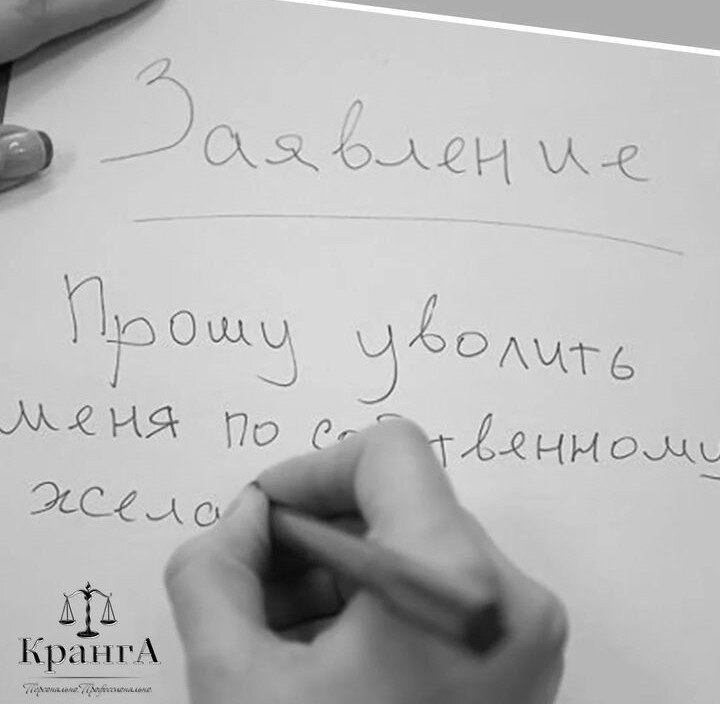 Заявление
Прошу уволить
меня по собственному
жела
КрангА
Персонально. Профессионально.